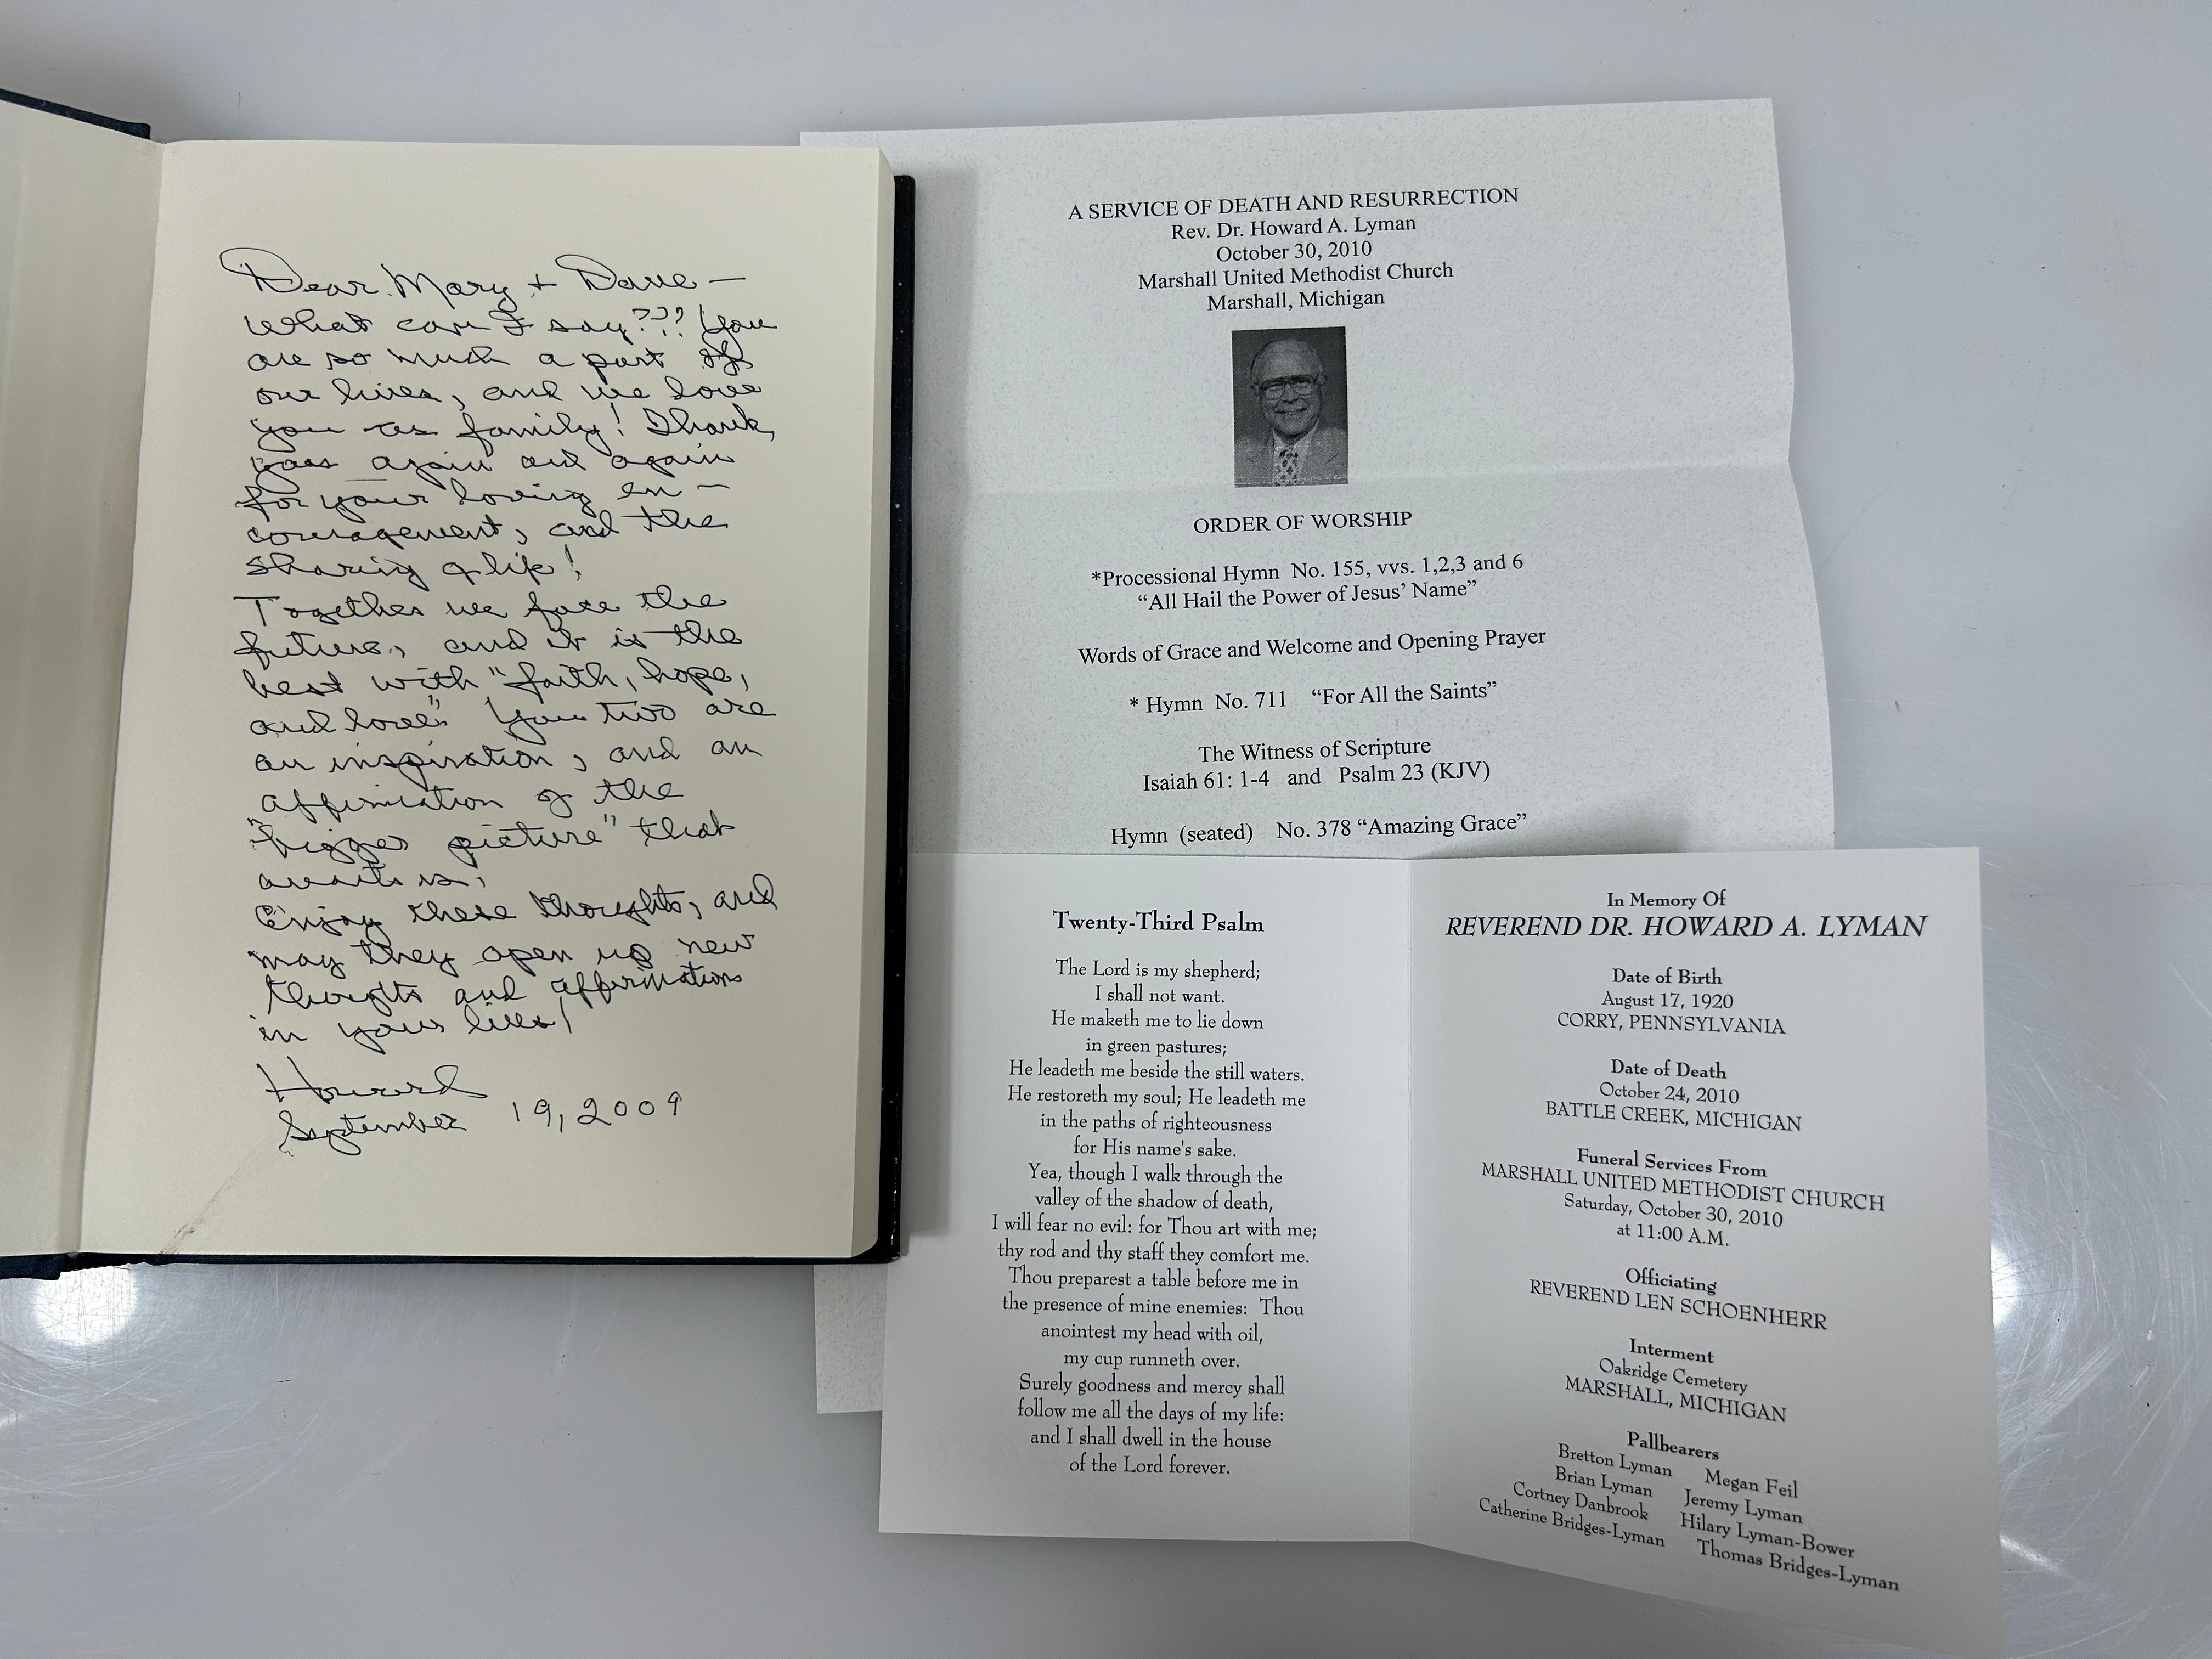 Dear Mary + Dave —
What can I say??? You
are so much a part of
our lives, and we love
you as family! Thank
you again and again
for your loving en-
couragement, and the
sharing of life!
Together we face the
future, and it is the
best with "faith, hope,
and love". You two are
an inspiration, and an
affirmation of the
"bigger picture" that
awaits us.
Enjoy these thoughts, and
may they open up new
thoughts and affirmations
in your lives!
Howard
September 19, 2009
A SERVICE OF DEATH AND RESURRECTION
Rev. Dr. Howard A. Lyman
October 30, 2010
Marshall United Methodist Church
Marshall, Michigan
ORDER OF WORSHIP
*Processional Hymn No. 155, vvs. 1,2,3 and 6
“All Hail the Power of Jesus’ Name”
Words of Grace and Welcome and Opening Prayer
* Hymn No. 711 “For All the Saints”
The Witness of Scripture
Isaiah 61: 1-4 and Psalm 23 (KJV)
Hymn (seated) No. 378 “Amazing Grace”
Twenty-Third Psalm
The Lord is my shepherd;
I shall not want.
He maketh me to lie down
in green pastures;
He leadeth me beside the still waters.
He restoreth my soul; He leadeth me
in the paths of righteousness
for His name's sake.
Yea, though I walk through the
valley of the shadow of death,
I will fear no evil: for Thou art with me;
thy rod and thy staff they comfort me.
Thou preparest a table before me in
the presence of mine enemies: Thou
anointest my head with oil,
my cup runneth over.
Surely goodness and mercy shall
follow me all the days of my life:
and I shall dwell in the house
of the Lord forever.
In Memory Of
REVEREND DR. HOWARD A. LYMAN
Date of Birth
August 17, 1920
CORRY, PENNSYLVANIA
Date of Death
October 24, 2010
BATTLE CREEK, MICHIGAN
Funeral Services From
MARSHALL UNITED METHODIST CHURCH
Saturday, October 30, 2010
at 11:00 A.M.
Officiating
REVEREND LEN SCHOENHERR
Interment
Oakridge Cemetery
MARSHALL, MICHIGAN
Pallbearers
Bretton Lyman Megan Feil
Brian Lyman Jeremy Lyman
Cortney Danbrook Hilary Lyman-Bower
Catherine Bridges-Lyman Thomas Bridges-Lyman